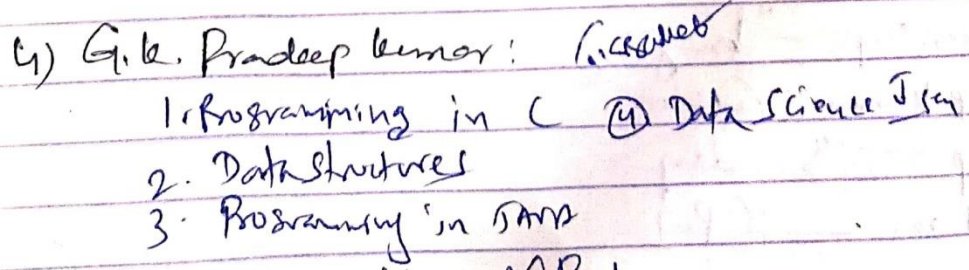 4) G.K. Pradeep kumar:
1. Programming in C ④ Data Science
2. Data Structures
3. Programming in JAVA